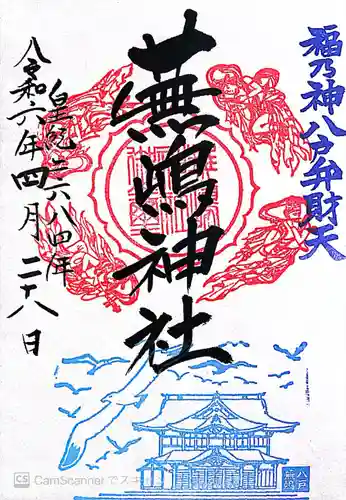 福乃神 八戸弁財天
蕪嶋神社
皇紀二六八四年
令和六年四月二十八日
八戸
蕪嶋
CS CamScanner でスキ